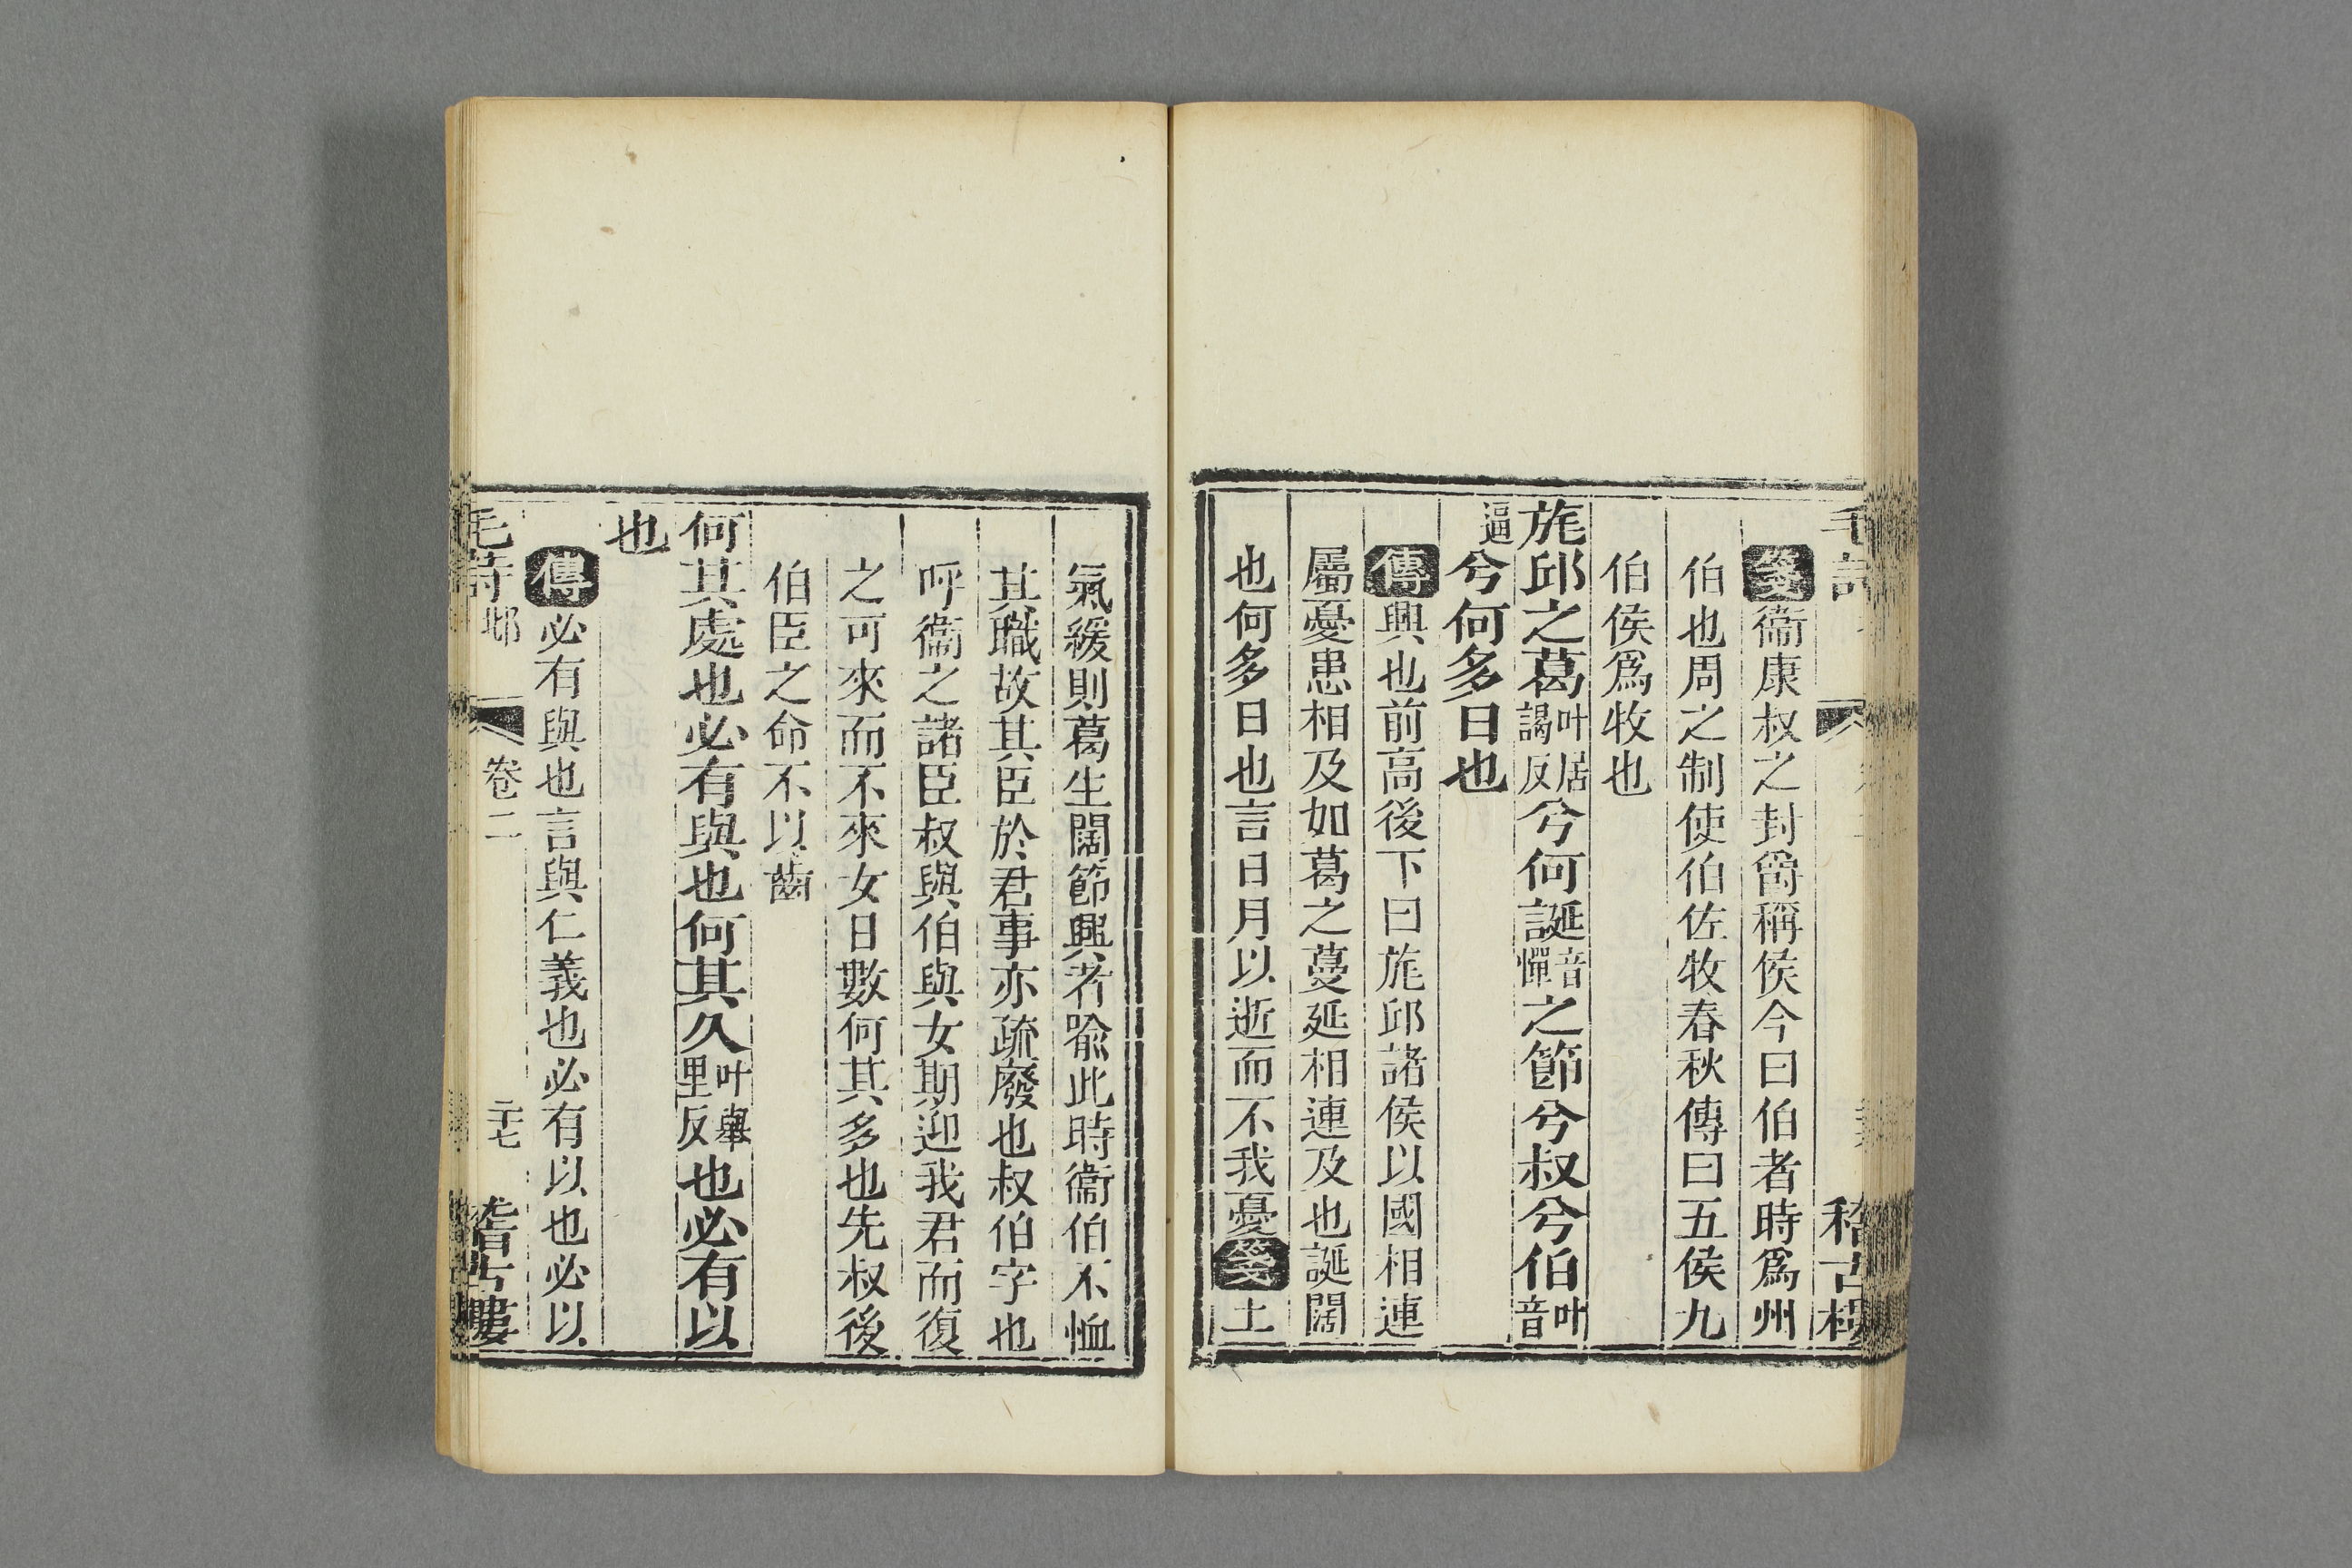 毛詩
稽古樓
箋衞康叔之封爵稱侯今曰伯者時爲州
伯也周之制使伯佐牧春秋傳曰五侯九
伯侯爲牧也
旄邱之葛叶居謁反兮何誕音憚之節兮叔兮伯叶音
逼兮何多日也
傳興也前高後下曰旄邱諸侯以國相連
屬憂患相及如葛之蔓延相連及也誕闊
也何多日也言日月以逝而不我憂箋土
氣緩則葛生闊節興者喻此時衞伯不恤
其職故其臣於君事亦疏廢也叔伯字也
呼衞之諸臣叔與伯與女期迎我君而復
之可來而不來女日數何其多也先叔後
伯臣之命不以齒
何其處也必有與也何其久叶舉里反也必有以
也
傳必有與也言與仁義也必有以也必以
毛詩 邶 卷二 二十七 稽古樓